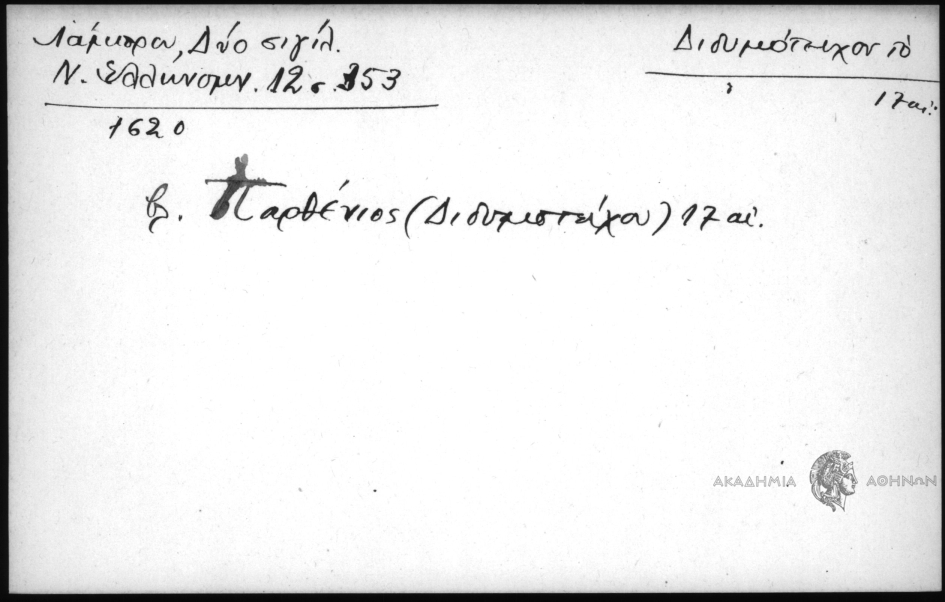 Λάμπρου, Δύο σιγίλ.
Ν. Ἑλληνομν. 12 σ. 353
Διδυμότειχον τό
17 αἰ.
1620
βλ. Παρθένιος (Διδυμοτείχου) 17 αἰ.
ΑΚΑΔΗΜΙΑ ΑΘΗΝΩΝ